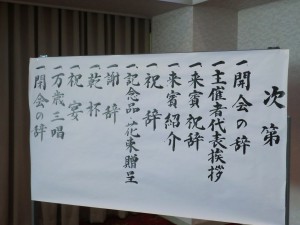 次第
一開会の辞
一主催者代表挨拶
一来賓祝辞
一来賓紹介
一祝辞
一記念品花束贈呈
一謝辞
一乾杯
一祝宴
一万歳三唱
一閉会の辞